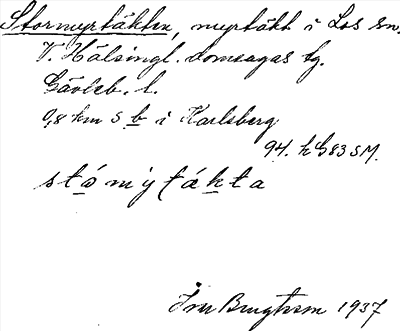 Stormyrtäkten, myrtäkt i Los sn.
V. Hälsingl. domsagas tg.
Gävleb. l.
0,8 km S b i Karlsberg
94. h G83 SM.
stómy̆täkta
Bengtsson 1937